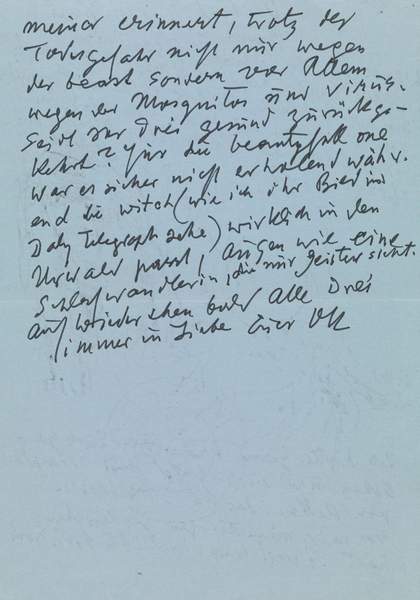 meiner erinnert, trotz der
Todesgefahr nicht nur wegen
der beast sondern vor Allem
wegen der Mosquitos und Virus.
Seid Ihr Drei gesund zurückge-
kehrt? Für die beautyfull one
war es sicher nicht erholend währ-
end die witch (wie ich ihr Bild im
Daily Telegraph sehe) wirklich in den
Urwald passt, Augen wie eine
Schlafwandlerin, die nur Geister sieht.
Auf wiedersehen bald alle Drei
immer in Liebe Euer OK